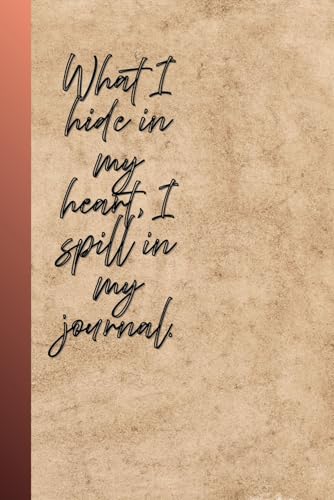 What I
hide in
my
heart, I
spill in
my
journal.